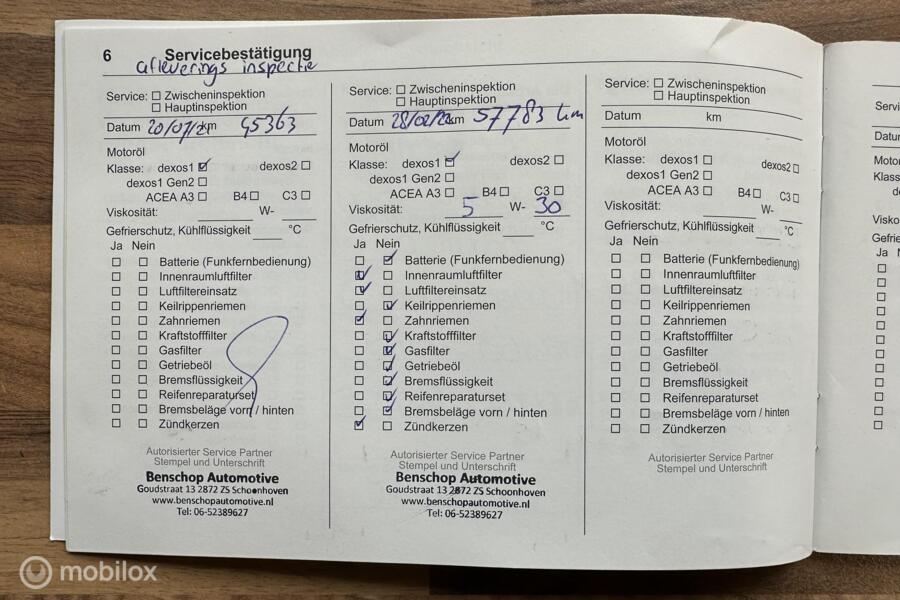 6 Servicebestätigung
afleverings inspectie
Service: ☐ Zwischeninspektion
☐ Hauptinspektion
Datum 20/07/ km 45363
Motoröl
Klasse: dexos1 ☑ dexos2 ☐
dexos1 Gen2 ☐
ACEA A3 ☐ B4 ☐ C3 ☐
Viskosität: W-
Gefrierschutz, Kühlflüssigkeit °C
Ja Nein
☐ ☐ Batterie (Funkfernbedienung)
☐ ☐ Innenraumluftfilter
☐ ☐ Luftfiltereinsatz
☐ ☐ Keilrippenriemen
☐ ☐ Zahnriemen
☐ ☐ Kraftstofffilter
☐ ☐ Gasfilter
☐ ☐ Getriebeöl
☐ ☐ Bremsflüssigkeit
☐ ☐ Reifenreparaturset
☐ ☐ Bremsbeläge vorn / hinten
☐ ☐ Zündkerzen
Autorisierter Service Partner
Stempel und Unterschrift
Benschop Automotive
Goudstraat 13 2872 ZS Schoonhoven
www.benschopautomotive.nl
Tel: 06-52389627
Service: ☐ Zwischeninspektion
☐ Hauptinspektion
Datum 28/02/ km 57783 km
Motoröl
Klasse: dexos1 ☑ dexos2 ☐
dexos1 Gen2 ☐
ACEA A3 ☐ B4 ☐ C3 ☐
Viskosität: 5 W- 30
Gefrierschutz, Kühlflüssigkeit °C
Ja Nein
☐ ☑ Batterie (Funkfernbedienung)
☑ ☐ Innenraumluftfilter
☑ ☐ Luftfiltereinsatz
☐ ☑ Keilrippenriemen
☑ ☐ Zahnriemen
☐ ☑ Kraftstofffilter
☐ ☑ Gasfilter
☐ ☑ Getriebeöl
☐ ☑ Bremsflüssigkeit
☐ ☑ Reifenreparaturset
☐ ☑ Bremsbeläge vorn / hinten
☑ ☐ Zündkerzen
Autorisierter Service Partner
Stempel und Unterschrift
Benschop Automotive
Goudstraat 13 2872 ZS Schoonhoven
www.benschopautomotive.nl
Tel: 06-52389627
Service: ☐ Zwischeninspektion
☐ Hauptinspektion
Datum km
Motoröl
Klasse: dexos1 ☐ dexos2 ☐
dexos1 Gen2 ☐
ACEA A3 ☐ B4 ☐ C3 ☐
Viskosität: W-
Gefrierschutz, Kühlflüssigkeit °C
Ja Nein
☐ ☐ Batterie (Funkfernbedienung)
☐ ☐ Innenraumluftfilter
☐ ☐ Luftfiltereinsatz
☐ ☐ Keilrippenriemen
☐ ☐ Zahnriemen
☐ ☐ Kraftstofffilter
☐ ☐ Gasfilter
☐ ☐ Getriebeöl
☐ ☐ Bremsflüssigkeit
☐ ☐ Reifenreparaturset
☐ ☐ Bremsbeläge vorn / hinten
☐ ☐ Zündkerzen
Autorisierter Service Partner
Stempel und Unterschrift
Ja
mobilox